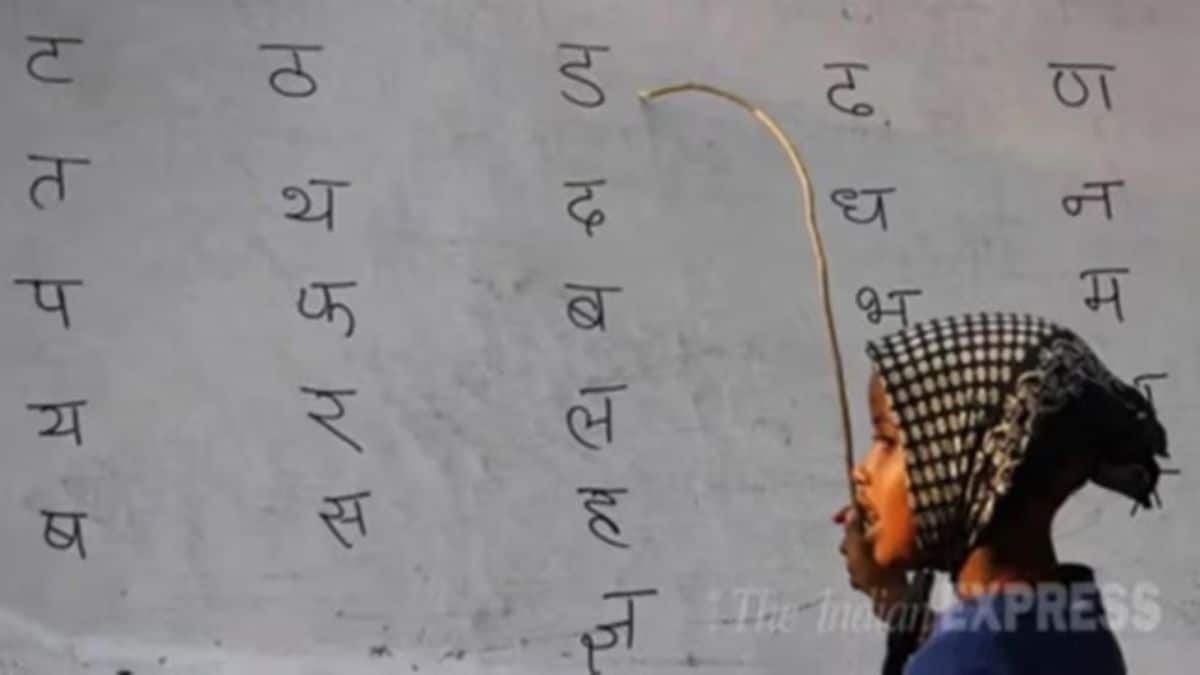 ट ठ ड ढ ण
त थ द ध न
प फ ब भ म
य र ल
ष स ह
ज्ञ
The Indian EXPRESS